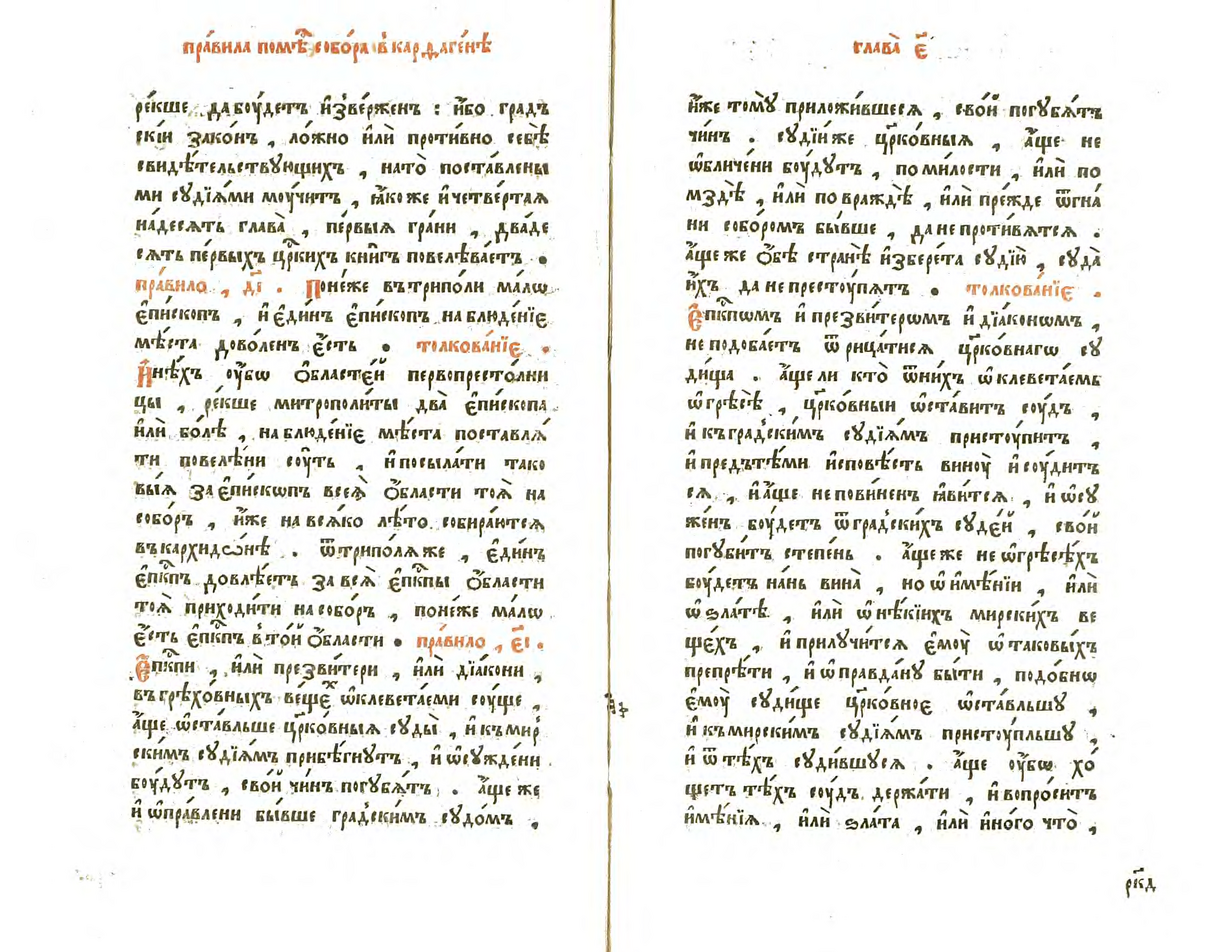 пра́вила помѣ́ⷭ собо́ра в̾ карѳаге́нѣ
ре́кше да боу́детъ и҆зве́рженъ : и҆́бо градъ
скі́и зако́нъ , ло́жно и҆лѝ проти́вно себѣ̀
свидѣ́тельствующихъ , на то̀ поставлены
ми судїѧ́ми моу́читъ , ꙗ҆́коже и҆ четве́ртаѧ
на́десѧть глава̀ , пе́рвыѧ гра́ни , два́де
сѧть пе́рвыхъ цр҇кихъ кни́гъ повелѣва́етъ .
пра́вило , д҃і . Поне́же въ три́поли ма́лѡ
є҆пи́скопъ , и҆ є҆ди́нъ є҆пи́скопъ на блюде́нїє
мѣ́ста дово́ленъ є҆́сть . толкова́нїє .
И҆нѣ́хъ оу҆́бѡ ѻ҆бласте́й первопресто́лни
цы , ре́кше митрополи́ты два̀ є҆пи́скопа
и҆лѝ бо́лѣ , на блюде́нїє мѣ́ста поставлѧ́
ти повелѣ́ни соу́ть , и҆ посыла́ти тако
вы́ѧ за є҆пи́скѡпъ всеѧ̀ ѻ҆́бласти тоѧ̀ на
собо́ръ , и҆́же на всѧ́ко лѣ́то собира́ютсѧ
въ кархидо́нѣ . ѿ три́полѧ же , є҆ди́нъ
є҆пⷭ҇кпъ довлѣ́етъ за всѧ̀ є҆пⷭ҇кпы ѻ҆́бласти
тоѧ̀ приходи́ти на собо́ръ , поне́же ма́лѡ
є҆́сть є҆пⷭ҇кпъ в̾ то́й ѻ҆́бласти . пра́вило , є҃і .
Є҆пⷭ҇кпи , и҆лѝ презви́тери , и҆лѝ дїа́кони ,
въ грѣхо́вныхъ ве́щеⷯ ѡ҆клевета́еми соу́ще ,
а҆́ще ѡ҆ста́вльше цр҇ко́вныѧ суды̀ , и҆ къ мир
скимъ судїѧ́мъ прибѣ́гнутъ , и҆ ѡ҆сужде́ни
боу́дутъ , сво́й чи́нъ погубѧ́тъ . а҆́ще же
и҆ ѡ҆пра́влени бы́вше гра́дскимъ судо́мъ ,
н҃з
глава̀ є҃
и҆́же тому̀ приложи́вшеесѧ , сво́й погубѧ́тъ
чи́нъ . судїи́ же цр҇ко́вныѧ , а҆́ще не
ѡ҆бличе́ни боу́дутъ , по ми́лости , и҆лѝ по
мздѣ̀ , и҆лѝ по враждѣ̀ , и҆лѝ пре́жде ѿгна́
ни собо́ромъ бы́вше , да не проти́вѧтсѧ .
а҆́ще же ѻ҆́бѣ странѣ̀ и҆збере́та судїи̂ , суда̀
и҆́хъ да не престоу́пѧтъ . толкова́нїє .
Є҆пⷭ҇кпѡмъ и҆ презви́терѡмъ и҆ дїа́конѡмъ ,
не подоба́етъ ѿрица́тисѧ цр҇ко́внагѡ су
ди́ща . а҆́ще ли кто̀ ѿ ни́хъ ѡ҆клевета́емь
ѡ҆ грѣсѣ̀ , цр҇ко́вныи ѡ҆ста́витъ соу́дъ ,
и҆ къ гра́дскимъ судїѧ́мъ пристоу́питъ ,
и҆ предъ тѣ́ми и҆сповѣ́сть виноу̀ и҆ соу́дитъ
сѧ , и҆ а҆́ще не пови́ненъ ꙗ҆ви́тсѧ , и҆ ѡ҆су
же́нъ боу́детъ ѿ гра́дскихъ суде́й , сво́й
погуби́тъ степе́нь . а҆́ще же не ѡ҆ грѣсѣ́хъ
боу́детъ на́нь вина̀ , но ѡ҆ и҆мѣ́нїи , и҆лѝ
ѡ҆ ѕла́тѣ , и҆лѝ ѡ҆ нѣ́киихъ мирски́хъ ве
ще́хъ , и҆ прилучи́тсѧ є҆моу̀ ѡ҆ таковы́хъ
препрѣ́ти , и҆ ѡ҆правда́ну бы́ти , подо́бнѡ
є҆моу̀ суди́ще цр҇ко́вноє ѡ҆ста́вльшу ,
и҆ къ мирски́мъ судїѧ́мъ пристоу́пльшу ,
и҆ ѿ тѣ́хъ суди́вшусѧ . а҆́ще оу҆́бѡ хо́
щетъ тѣ́хъ соу́дъ держа́ти , и҆ вопро́ситъ
и҆мѣ́нїѧ , и҆лѝ ѕла́та , и҆лѝ и҆но́го что̀ ,
рк҃д